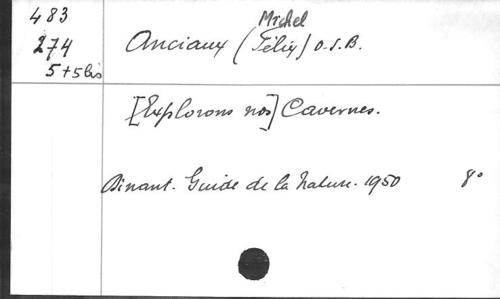 483
274
5+5bis
Michel
Anciaux (Félix) O.S.B.
[Explorons nos] Cavernes.
Dinant. Guide de la Nature. 1950 8°